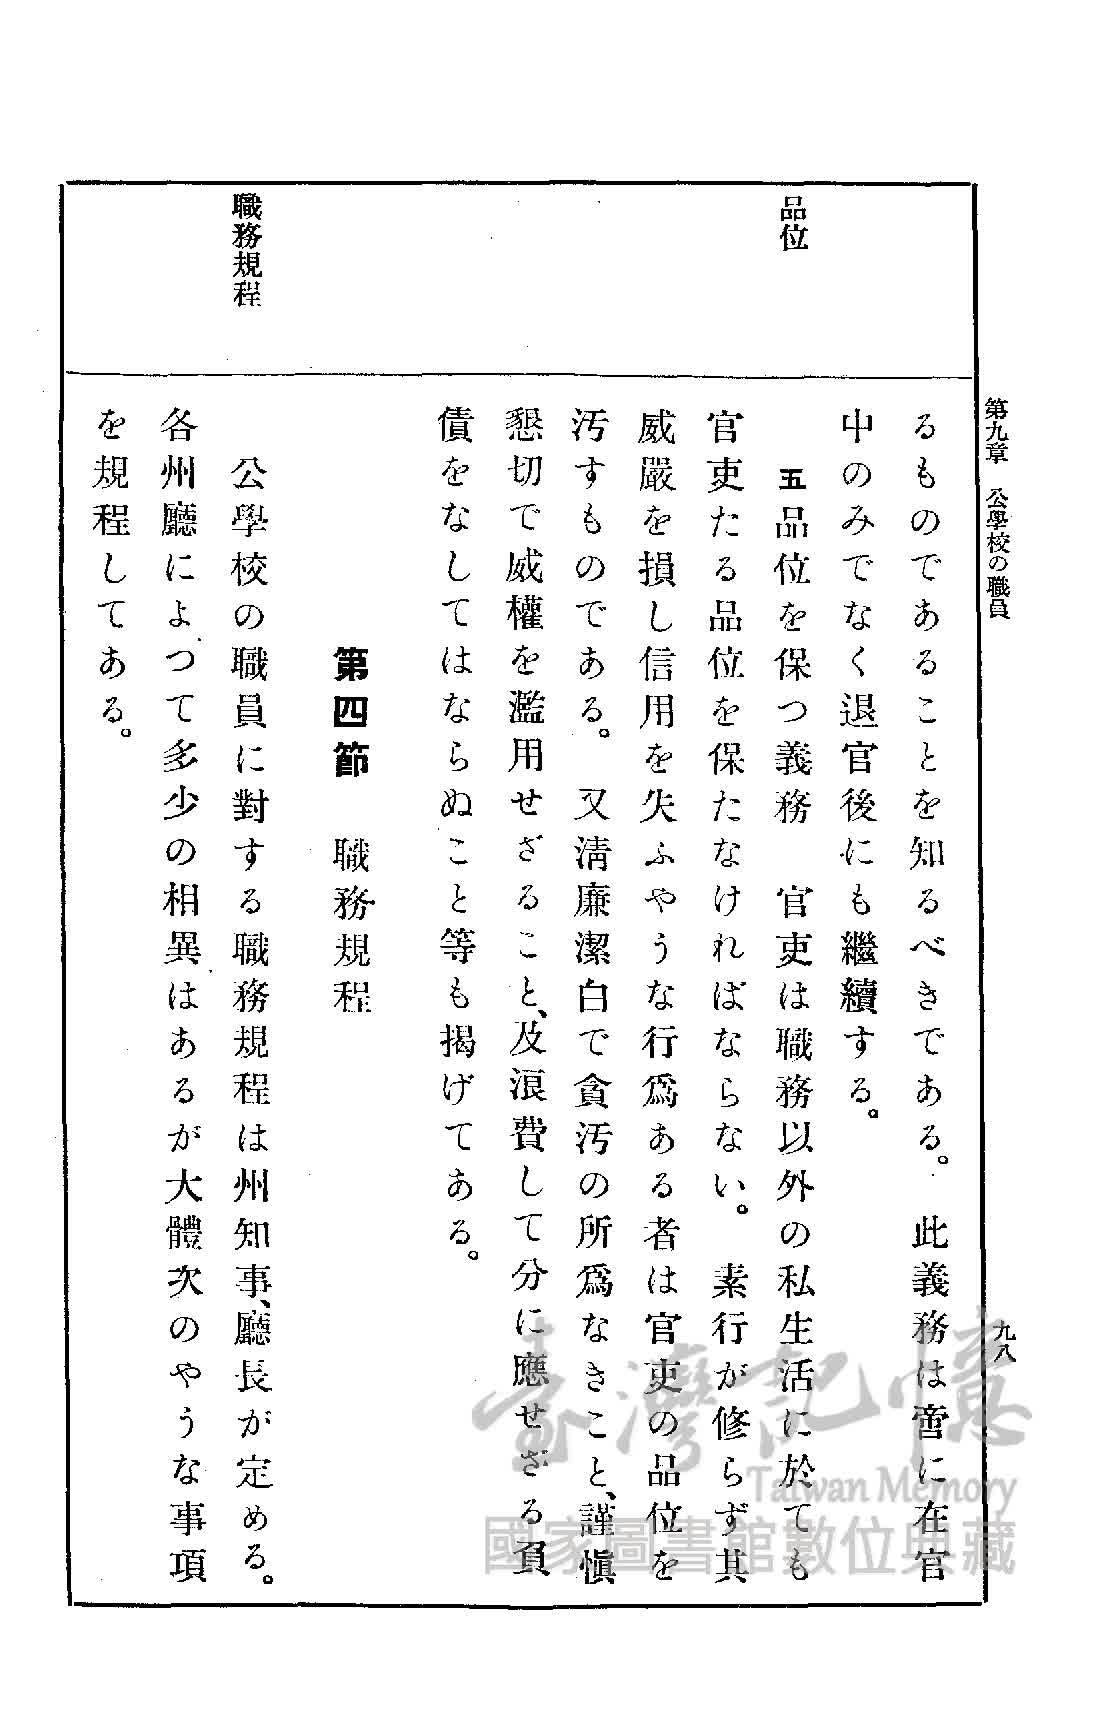 第九章　公學校の職員
九八
品位
職務規程
るものであることを知るべきである。　此義務は啻に在官
中のみでなく退官後にも繼續する。
五品位を保つ義務　官吏は職務以外の私生活に於ても
官吏たる品位を保たなければならない。　素行が修らず其
威嚴を損し信用を失ふやうな行爲ある者は官吏の品位を
汚すものである。　又淸廉潔白で貪汚の所爲なきこと、謹愼
懇切で威權を濫用せざること、及浪費して分に應せざる負
債をなしてはならぬこと等も揭げてある。
第四節　職務規程
公學校の職員に對する職務規程は州知事、廳長が定める。
各州廳によつて多少の相異はあるが大體次のやうな事項
を規程してある。
臺灣記憶
Taiwan Memory
國家圖書館數位典藏